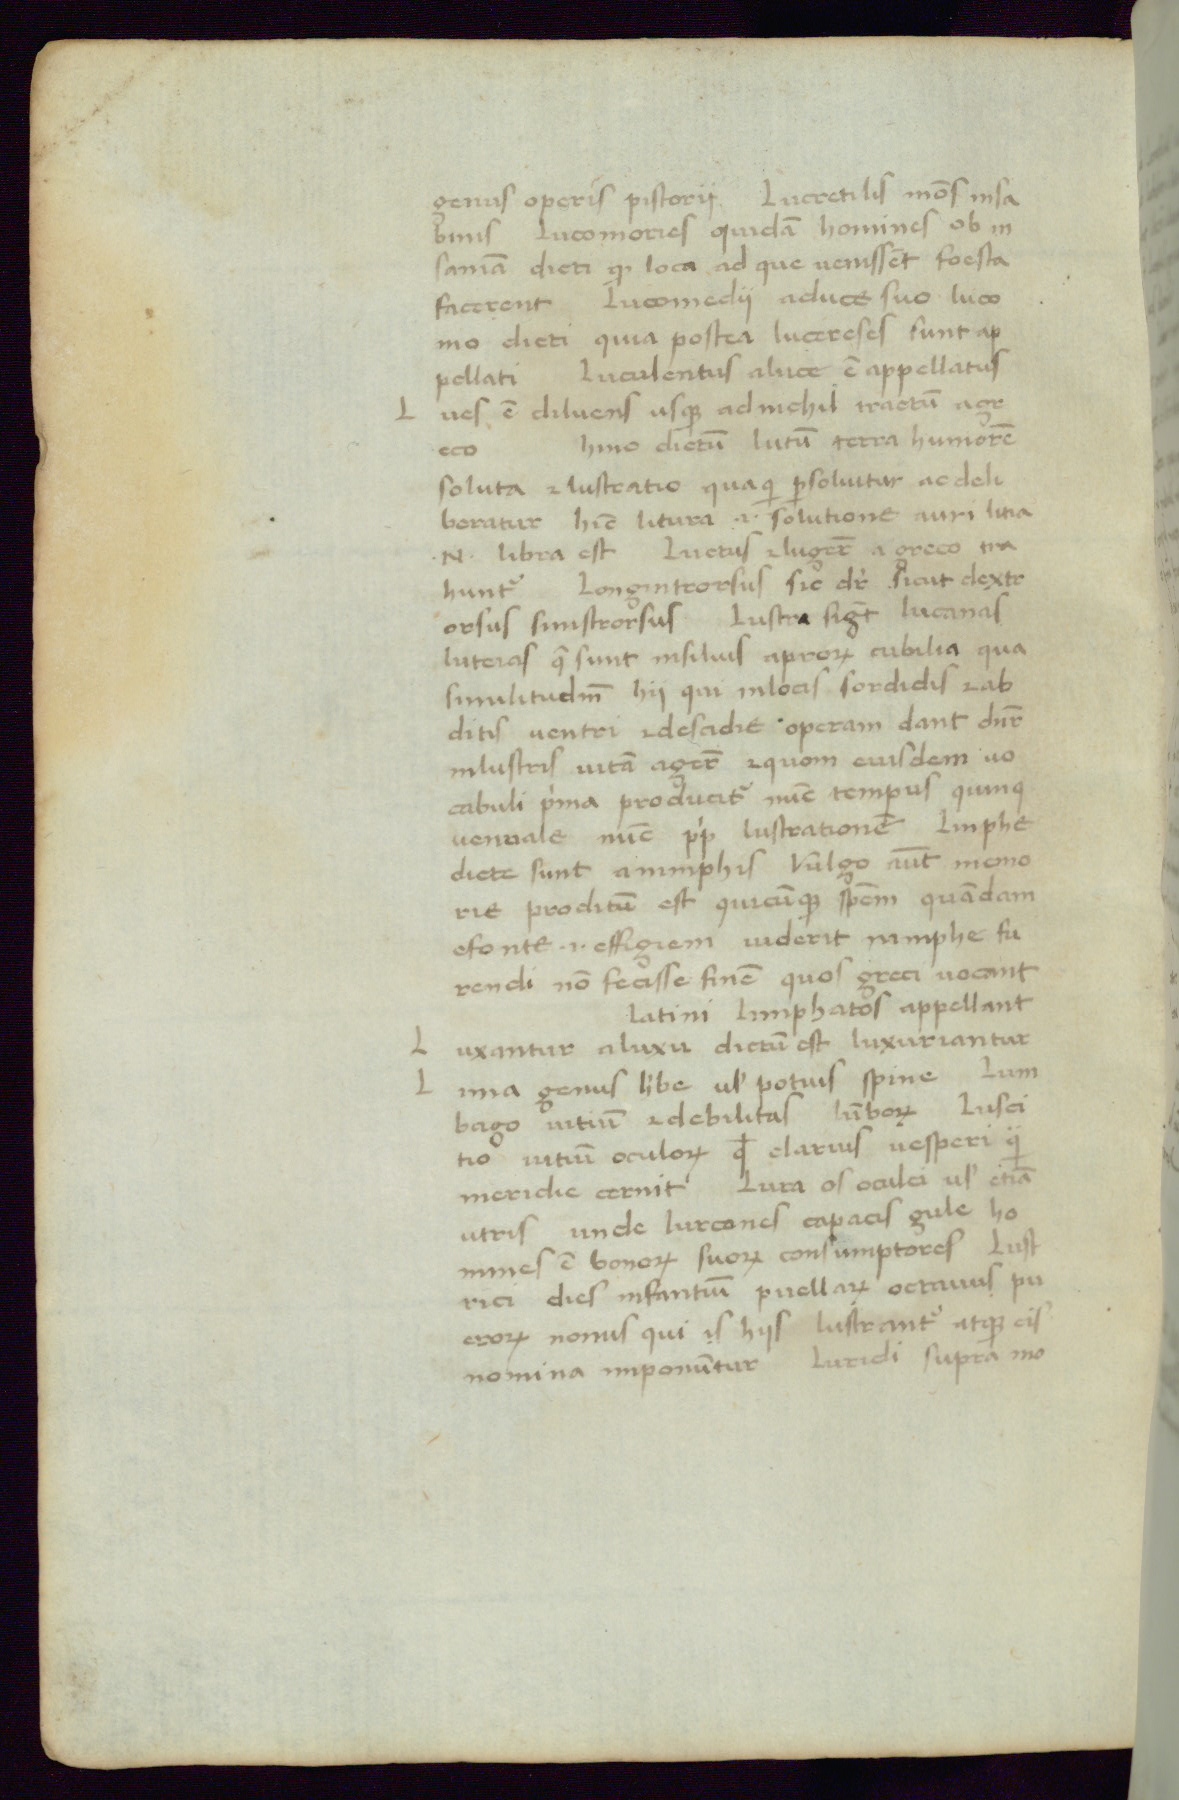 genus operis pistorij Lucretilis mōs insa
binis Lucomones quidā homines ob in
saniā dicti qͥ loca ad que uenissēt foesta
facerent Lucomedij aduce suo luco
mo dicti quia postea lucereses sunt ap
pellati Luculentus aluce ē appellatus
L ues ē diluens usqꝫ ad nichil tractū agr
eco hinc dictū lutū terra humorē
soluta ⁊ lustratio quaqͥ ꝑsoluitur ac deli
beratur hīc litura .i. solutione auri litia
.N. libra est Luctus ⁊ lugeꝛ̄ a greco tra
huntᷣ Longintrorsus sic dr̄ sicut dextr
orsus sinistrorsus Lustra sigt̄ lucanas
luteas q̄ sunt insiluis aproꝝ cubilia qua
similitudīn hij qui inlocis sordidis ⁊ ab
ditis uentri ⁊ desidie operam dant dn̄r
inlustris uitā ageꝛ̄ ⁊ quom euisdem uo
cabuli pͥma producitᷣ nūc tempus quinq
uennale nūc pp̄ lustrationē Limphe
dicte sunt animphis Vulgo aūt memo
rie proditū est quicūqꝫ spēm quādam
efonte .i. effigiem uiderit nimphe fu
rendi nō fecisse finē quos greci uocant
latini limphatos appellant
L uxantur aluxu dictū est luxuriantur
L ima genus hͤbe uͥl potius spine Lum
bago uitiū ⁊ debilitas lūboꝝ Lusci
tio uitiū oculoꝝ qđ clarius uesperi qͣ
meridie cernit Lura os oculei uͥl etiā
utris unde lurcones capacis gule ho
mines ē bonoꝝ suoꝝ consumptores Lust
rici dies infantiū puellaꝝ octauus pu
eroꝝ nonus qui is hijs lustrantᷣ atqꝫ eis
nomina imponūtur Luridi supra mo